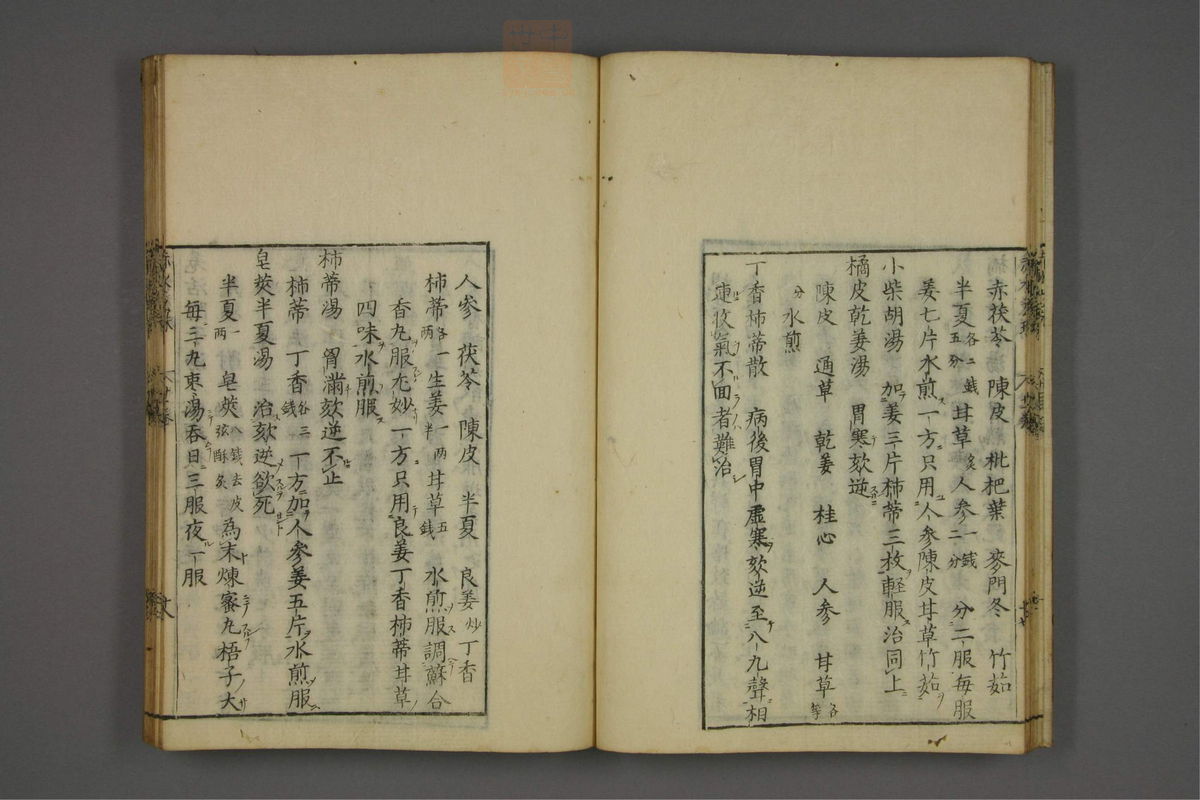 赤茯苓湯 陳皮 枇杷葉 麥門冬 竹茹
半夏各二錢五分 甘草炙 人参一錢二分 分二服毎服
姜七片水煎一方只用人参陳皮甘草竹茹
小柴胡湯 加姜三片柿蒂三枚軽服治同上
橘皮乾姜湯 胃寒欬逆
陳皮 通草 乾姜 桂心 人参 甘草各等
分 水煎
丁香柿蒂散 病後胃中虚寒欬逆至八九聲相
連收氣不囬者難治
人參 茯苓 陳皮 半夏 良姜炒 丁香
柿蒂各一両 生姜一両半 甘草五錢 水煎服調蘇合
香丸服尤妙一方只用良姜丁香柿蒂甘草
四味水煎服
柿蒂湯 胃滿欬逆不止
柿蒂 丁香各二錢 一方加人参姜五片水煎服
皂莢半夏湯 治欬逆欲死
半夏一両 皂莢八錢去皮弦酥炙 為末煉蜜丸梧子大
毎三丸枣湯吞日三服夜一服